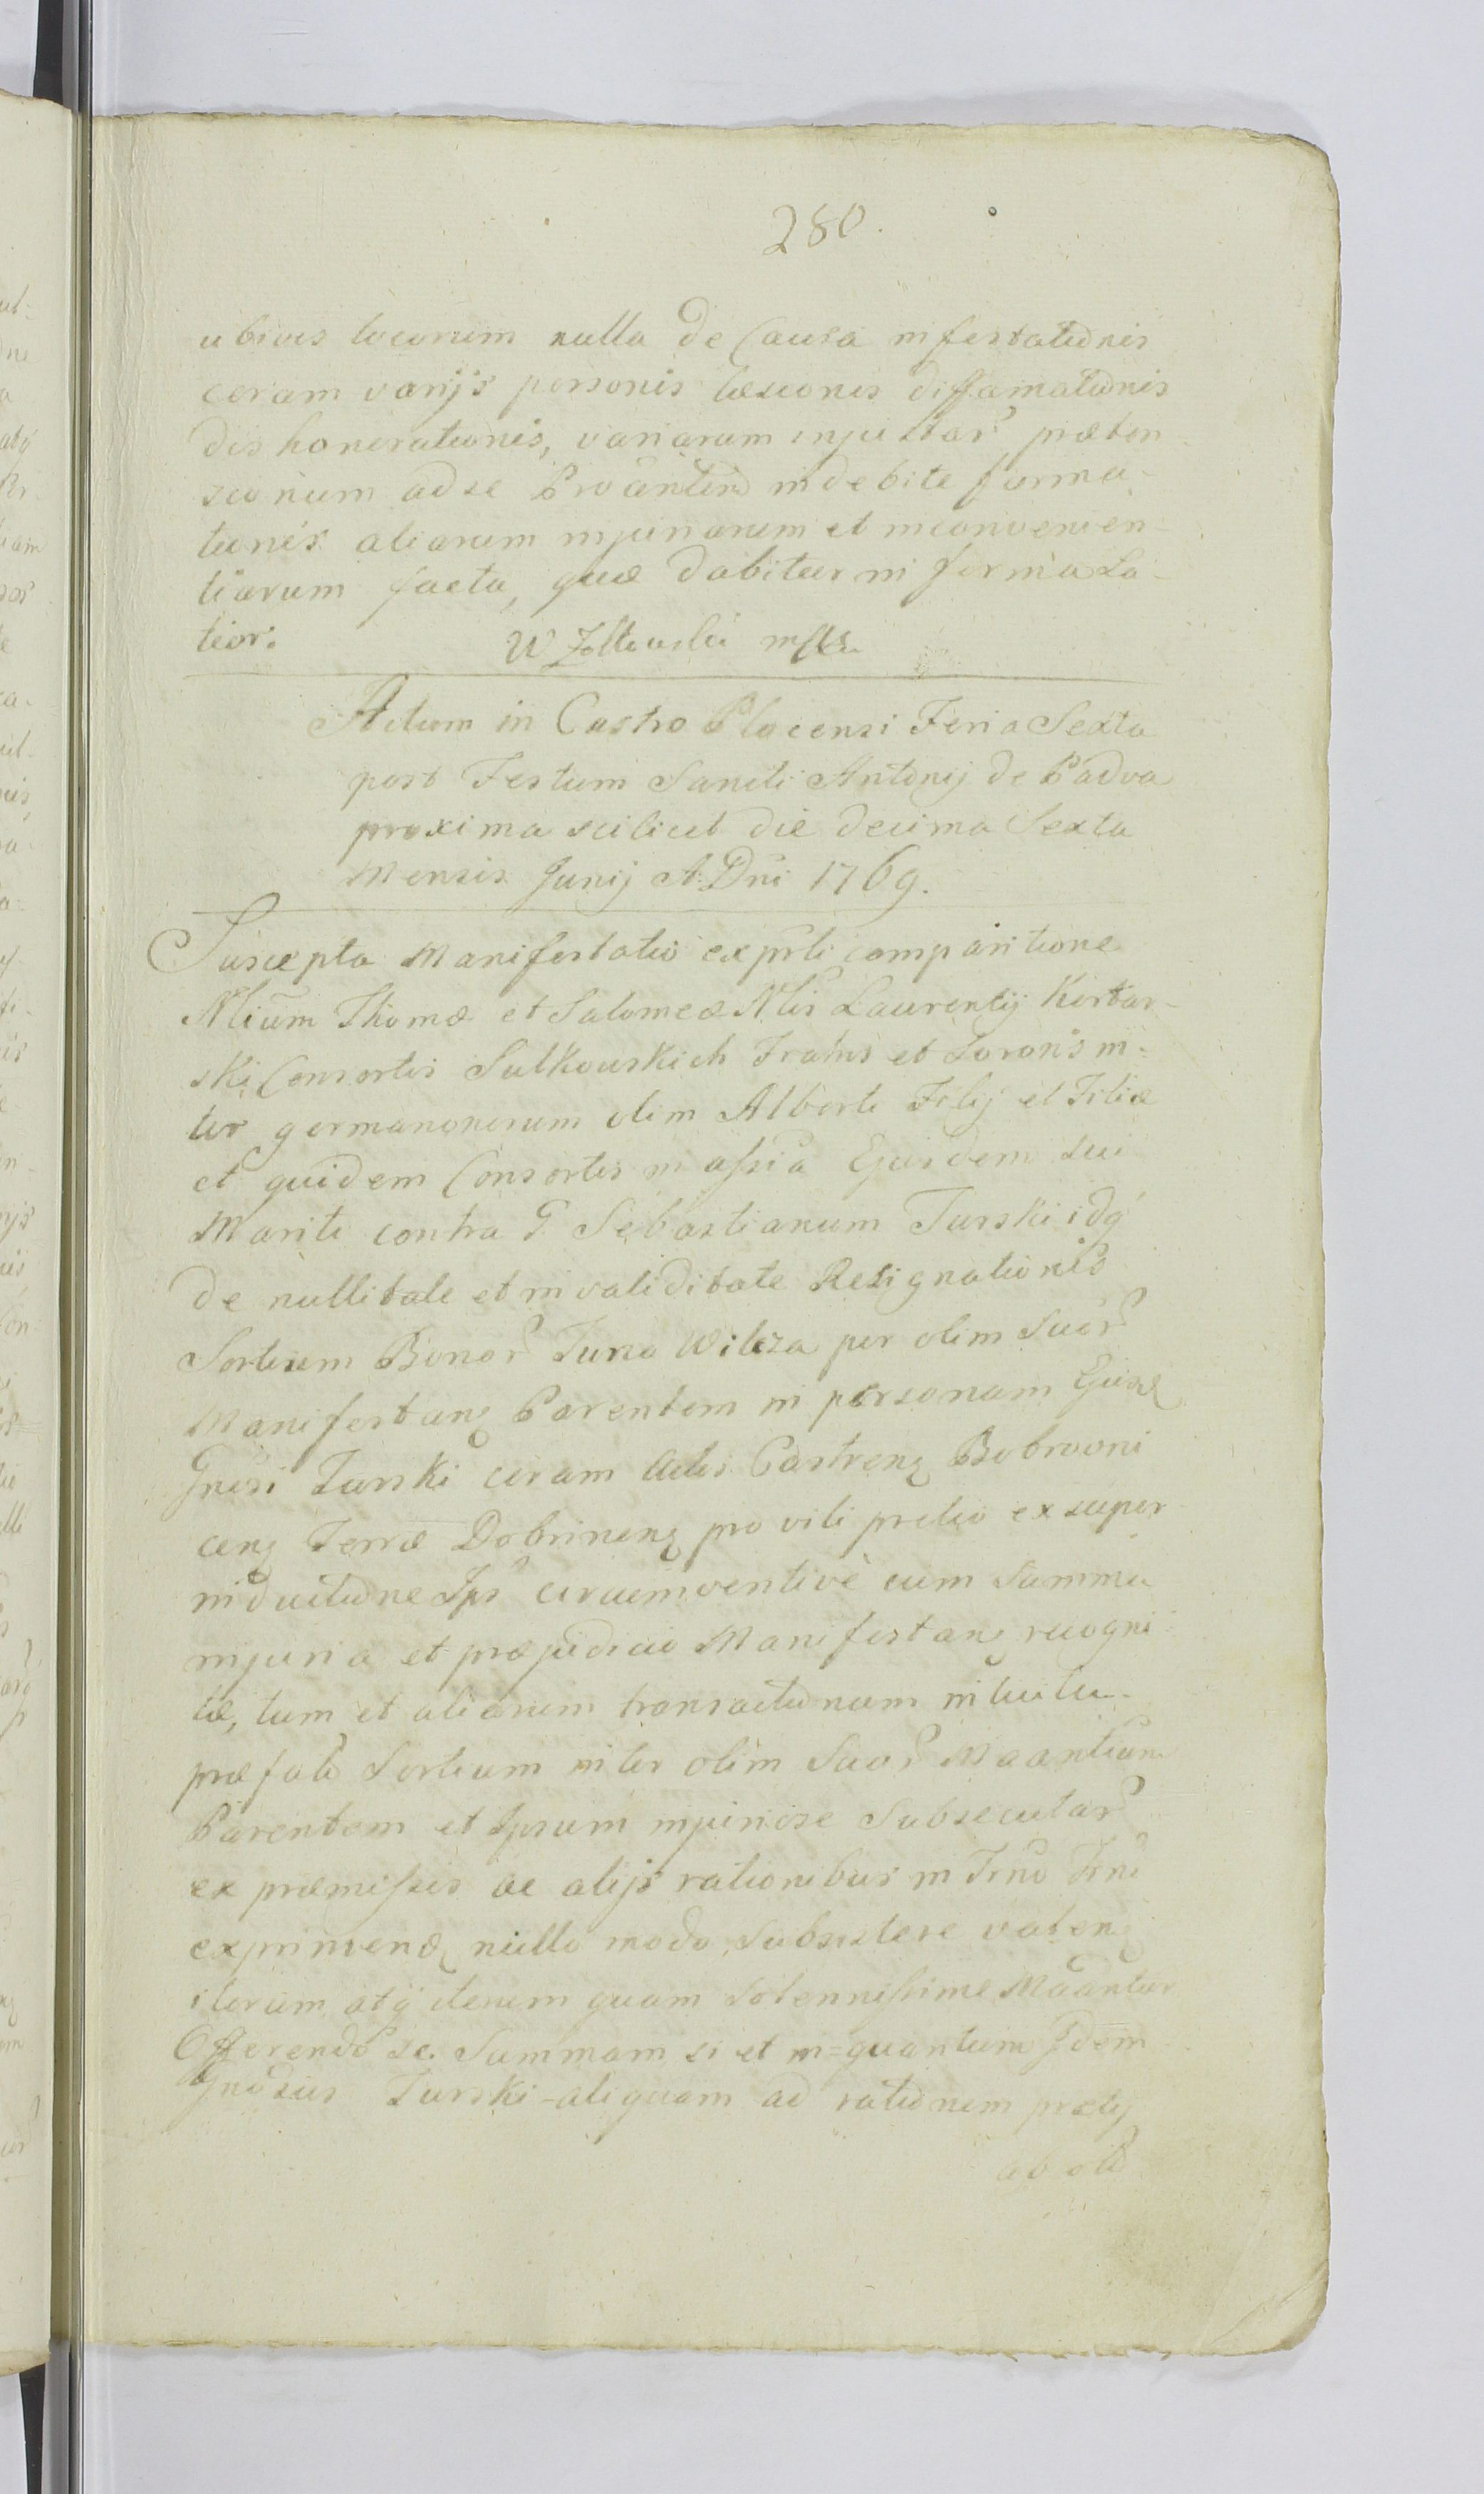 280.
ubivis locorum nulla de Causa infestationis
coram varijs personis læsionis diffamationis
dishonorationis, variarum injustar præten-
sionum ad se Prõantem indebite forma-
tionis aliarum injuriarum et inconvenien-
tiarum facta, quæ dabitur in forma La-
tior.
W Zoltowski mpa
Actum in Castro Plocensi Feria Sexta
post Festum Sancti Antonij de Padva
proxima scilicet die decima Sexta
Mensis Junij A: Dñi 1769.
Suscepta Manifestatio ex pñti comparitione
Nlium Thomæ et Salomeæ Nlis Laurentij
ski Consortis Sulkowskich Fratris et Sororis in-
ter germanorum olim Alberti Filij et Filiæ
et quidem Consortis in assia Ejusdem sui
Mariti contra G Sebastianum Turski idq
de nullitate et invaliditate Resignationis
Sortium Bonor Turza Wilcza per olim Suor
Manifestan Parentem in personam Ejusd
Gnosi Turski coram Actis Castren Bobrovni
cen Terræ Dobrinen pro vili pretio ex super
inductione Ips circumventive cum summa
injuria et præjudicio Manifestan recogni-
tæ, tum et aliarum transactionum intuitu
præfat Sortium inter olim Suor Maantium
Parentem et Ipsum injuriose Subsecutar
ex præmissis ac alijs rationibus in Trno Trni
exprimend nullo modo Subsistere valen
iterum atq iterum quam Solennissime Maantur
Offerendo se Summam si et in quantum Idem
Gnosus Turski aliquam ad rationem pretij
ab oli